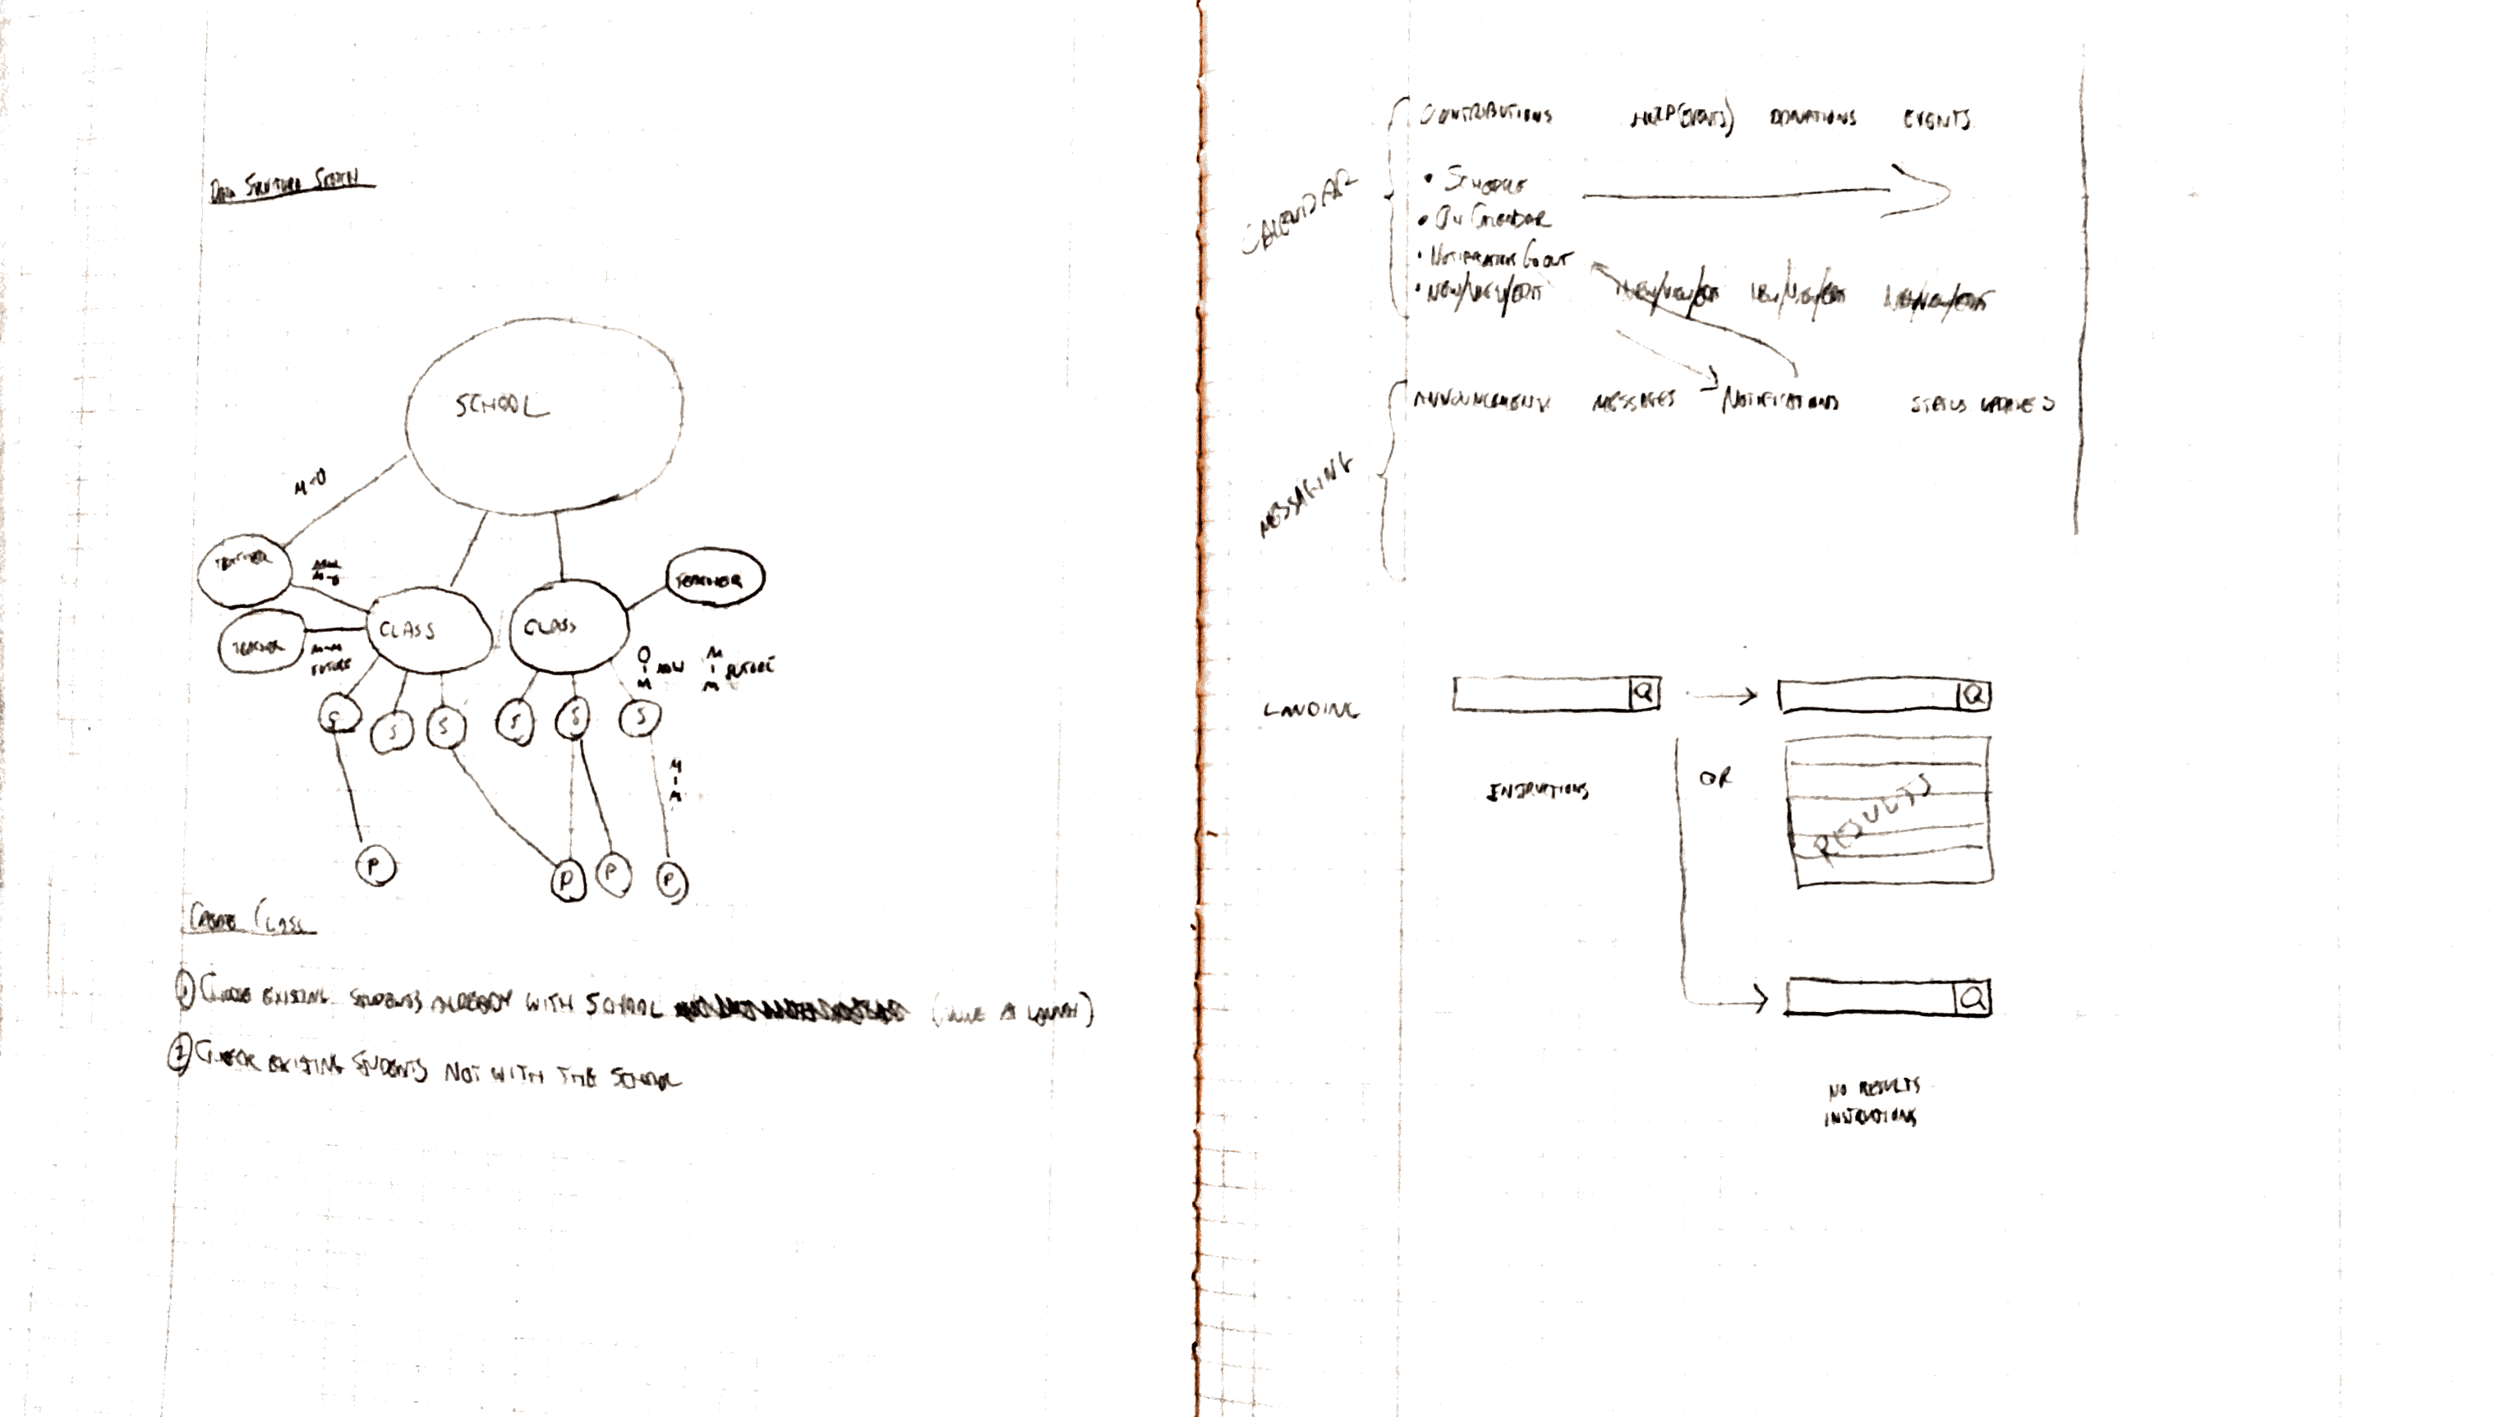 DATA STRUCTURE SKETCH
SCHOOL
M-O
TEACHER
NOW
M-O
TEACHER
CLASS
CLASS
TEACHER
TEACHER
M-M
FUTURE
O
M
NOW
M
M
FUTURE
S
S
S
S
S
S
M
M
P
P
P
P
CREATE CLASS
1 CHOOSE EXISTING STUDENTS ALREADY WITH SCHOOL
2 CHOOSE EXISTING STUDENTS NOT WITH THE SCHOOL
CALENDAR
CONTRIBUTIONS HELP (EVENTS) DONATIONS EVENTS
• SCHEDULE
• ON CALENDAR
• NOTIFICATIONS GO OUT
• NEW/VIEW/EDIT NEW/VIEW/EDIT NEW/VIEW/EDIT NEW/VIEW/EDIT
MESSAGING
ANNOUNCEMENTS MESSAGES NOTIFICATIONS STATUS UPDATES
LANDING
OR
RESULTS
NO RESULTS
INSTRUCTIONS